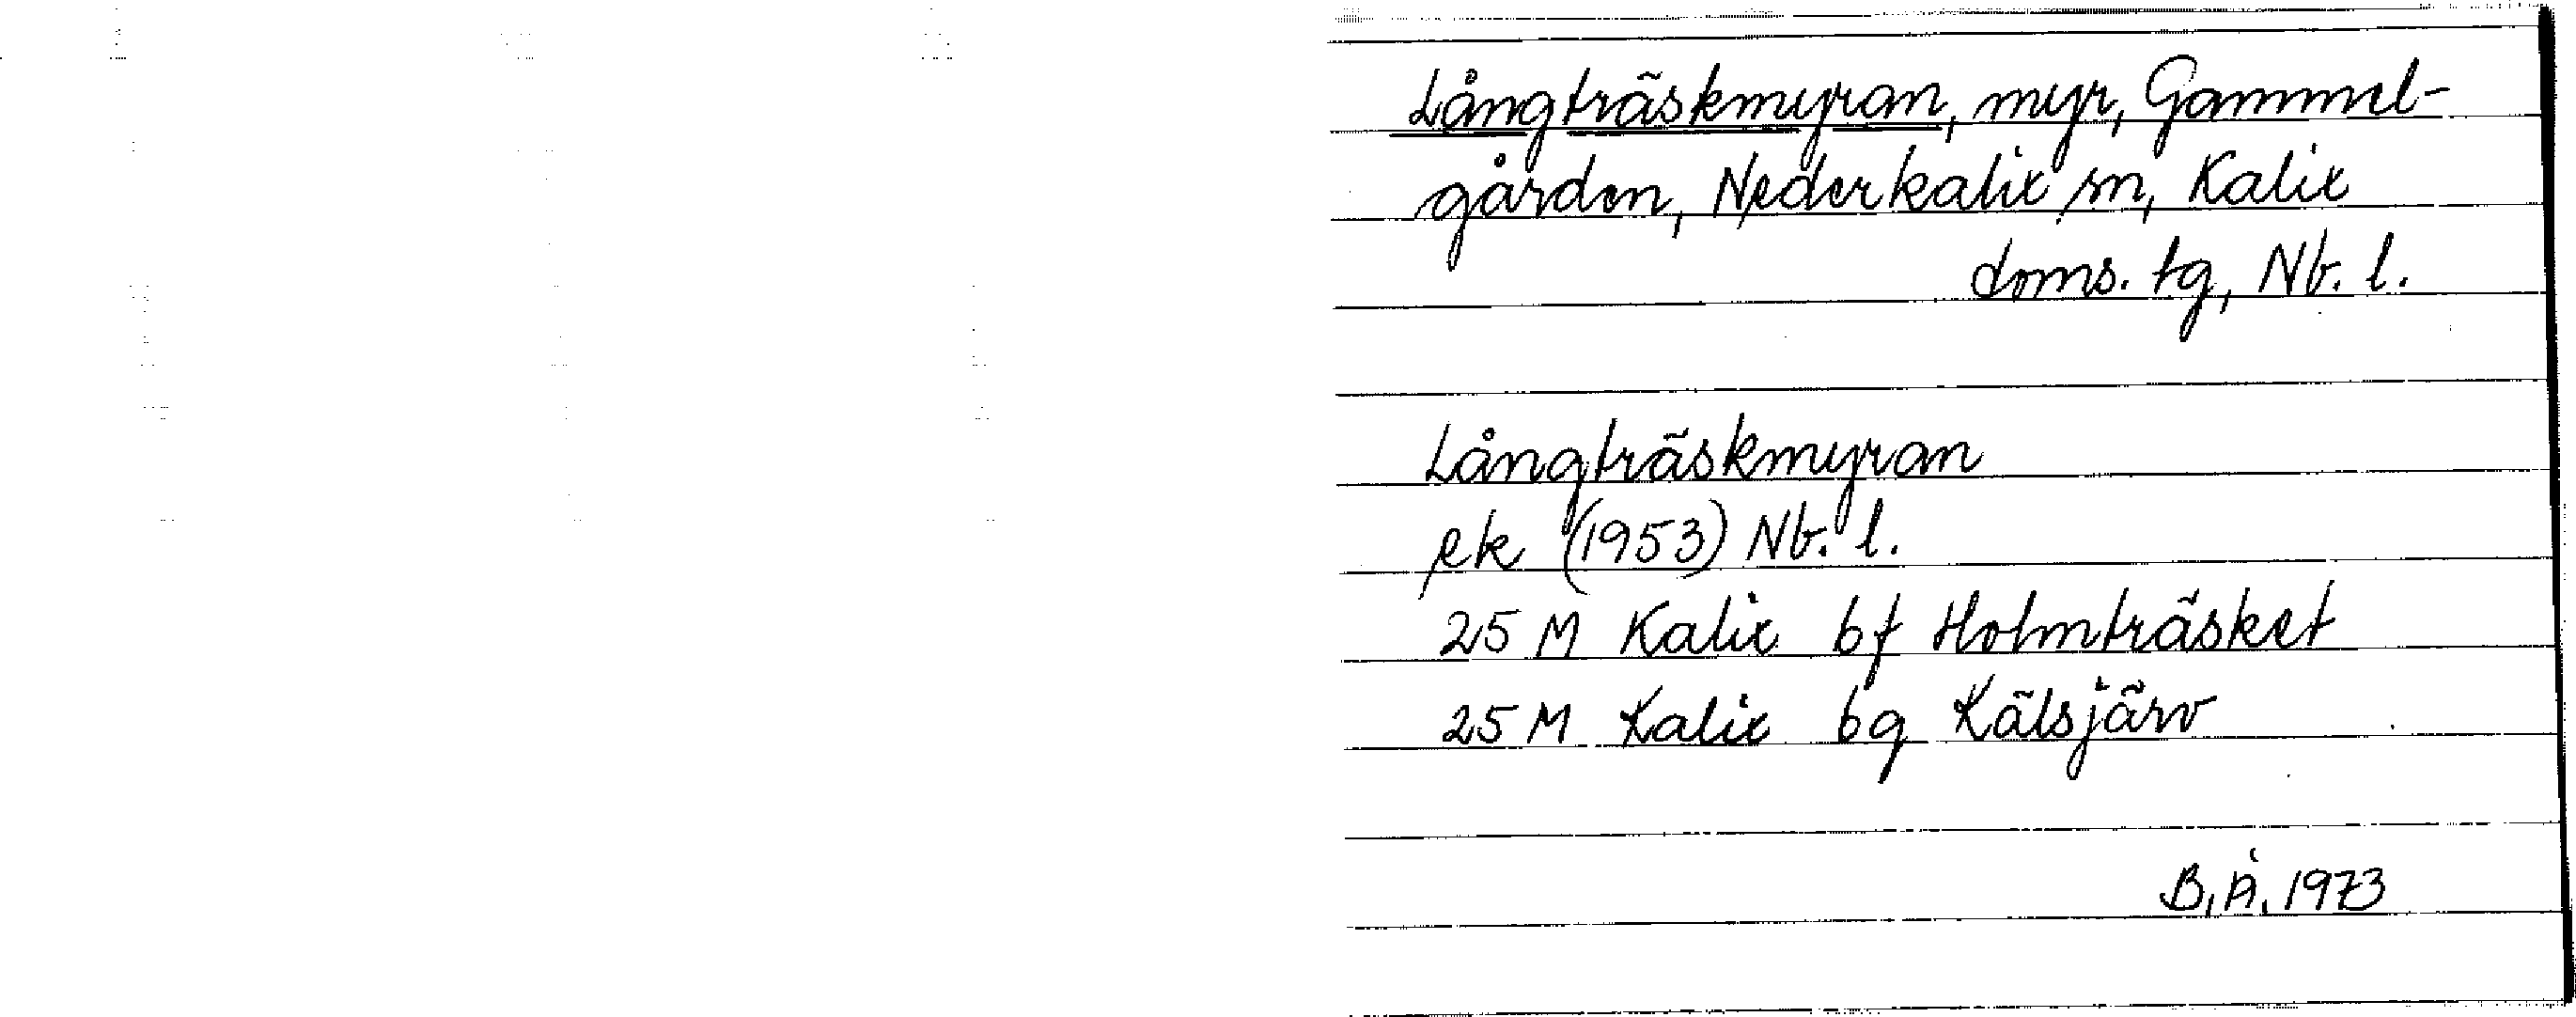 Långträskmyran, myr, Gammel-
gården, Nederkalix sn, Kalix
doms. tg, Nb. l.
Långträskmyran
ek (1953) Nb. l.
25 M Kalix bf Holmträsket
25 M Kalix bg Kälsjärv
B.Å. 1973